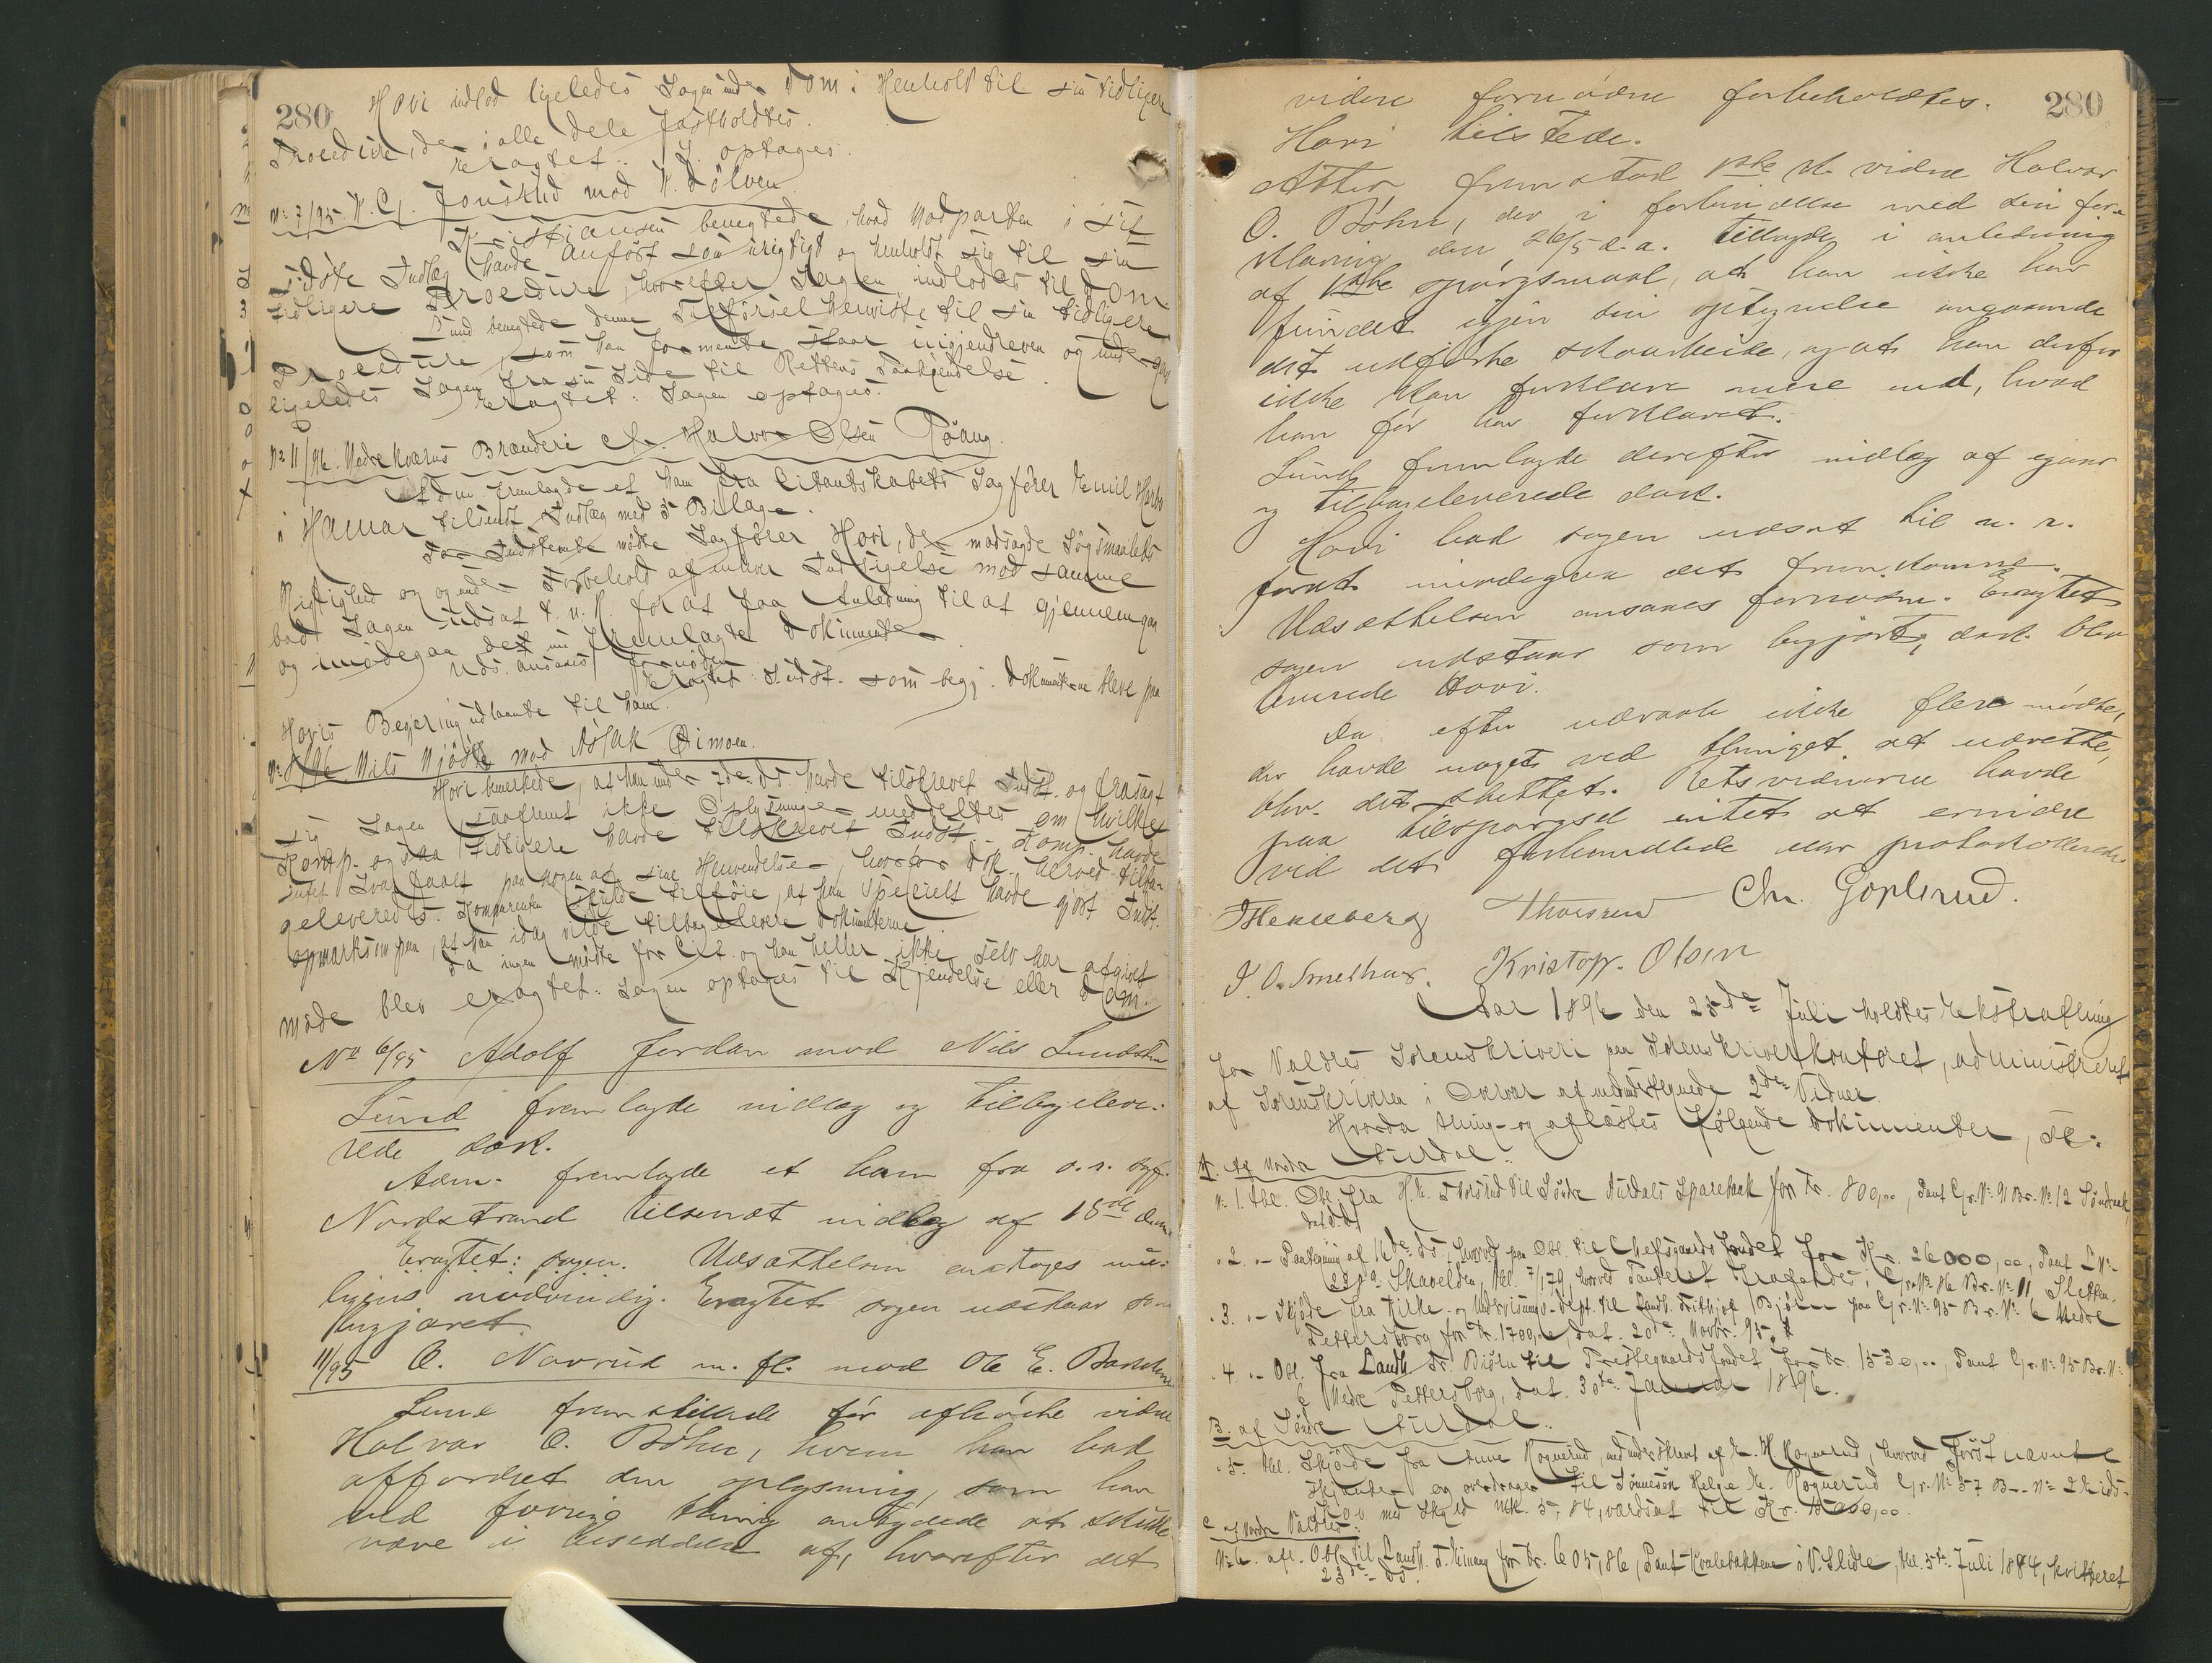 280 Hovi indlod ligeledes Sagen under Dom i Henhold til sin tidligere
Procedure, der i alle Dele fastholdtes.
Eragtet: S. optages.
No 7/95. N. Cf. Jonstad mod N. Dølven.
Kristiansen benegtede, hvad Modparten i sit
sidste Indlæg havde anført som urigtigt og henholdt sig til sin
tidligere Procedure, hvorefter Sagen indlodes til Dom.
Lund benegtede denne Tilførsel henviste til sin tidligere
Procedure, som han formente staar uigjendreven og
ligeledes Sagen fra sin Side til Rettens Paakjendelse.
Eragtet: Sagen optages.
No 11/96. Nedre Kværns Brænderi ctr. Halvor Olsen
Adm. fremlagde et ham fra Citantskabets Sagfører Emil
i Hamar tilsendt Indlæg med 5 Bilage.
For Indstevnte mødte Sagfører Hovi, der modsagde Søgsmaalets
Rigtighed og under Forbehold af enhver Indsigelse mod samme
bad Sagen udsat t. n. R. for at faa Anledning til at gjennemgaa
og imødegaa de nu fremlagte Dokumenter.
Uds. ansaaes fornøden.
Eragtet: S. udst. som begj. Dokumenterne bleve paa
Hovis Begjering udlaante til ham.
Nils Mjøsth mod Aslak Øimoen.
Hovi bemerkede, at han under 7de ds. havde tilskrevet Indst. og frasagt
sig Sagen saafremt ikke Oplysninger meddeltes om hvilket
Komp. ogsaa tidligere havde tilskrevet Indst. Komp. havde
intet Svar faaet paa nogen af sine Henvendelser, hvorfor Dok. herved tilba-
geleveredes. Komparenten skulde tilføie, at han specielt havde gjort Indst.
opmærksom paa, at han idag vilde tilbagelevere Dokumenterne.
Da ingen mødte for Cit. og han heller ikke selv har afgivet
møde blev eragtet: Sagen optages til Kjendelse eller Dom.
No 6/95 Adolf Jordan mod Nils Lundsten
Lund fremlagde indlæg og tilbageleve-
rede dok.
Adm. fremlagde et ham fra o.r. sagf.
Nordstrand tilsendt indlæg af 18de
Eragtet: sagen. Udsættelsen
nødvendig. Eragtet sagen udstaar som
begjæret.
11/95 O. Novrud m. fl. mod Ole E.
Lund fremstillede før afhørte vidne
Halvor O. Bøhn, hvem han bad
affordret den oplysning, som han
ved forrige thing antydede at skulle
være i besiddelse af, hvorefter det
280
videre fornødne forbeholdtes.
Hovi tilstede.
Atter fremstod 1ste vidne Halvor
O. Bøhn, der i forbindelse med sin for-
klaring den 26/5 d.a. tillagde i anledning
af 1ste spørgsmaal, at han ikke har
fundet igjen sin optegnelse angaaende
det udførte skovarbeide, og at han derfor
ikke kan forklare mere end, hvad
han før har forklaret.
Lund fremlagde derefter indlæg af igaar
og tilbageleverede dok.
Hovi bad sagen udsat til n. r.
for at imødegaa det fremkomne.
Udsættelsen ansaaes fornøden. Eragtet
sagen udstaar som begjært; dok. blev
leverede Hovi.
Da efter udraab ikke flere mødte,
der havde noget ved thinget at udrette,
blev det sluttet. Retsvidnerne havde
paa tilspørgsel intet at erindre
ved det forhandlede eller protokollerede
Thorsrud Chr. Goplerud.
Kristoff. Olsen
Aar 1896 den 23de Juli holdtes Ekstrathing
for Valdres Sorenskriveri paa Sorenskriverkontoret, administreret
af Sorenskriveren i Overvær af undertegnede 2de Vidner.
Hvorda thing- og aflæstes følgende Dokumenter, :
A. Af Nordre Aurdal:
No 1. thl. Obl. fra H. E. til Søndre Aurdals Sparebank for Kr. 800,00, Pant G.No 91 Br.No 12
dat. d.d.
" 2. "- Paategning af 16de ds., hvorved paa Obl. til Chefsgaardsfondet for Kr. 26000,00, Pant LNo
Skavelden, thl. 7/1 79, hvorved Pantet frafaldes i Gr.No 86 Br.No 11,
" 3. "- Skjøde fra Kirke- og Undervisnings-Dept. til Landh. Frithjof Bjørn paa Gr.No 95 Br.No 6 Nedre
Pettersborg for Kr. 1700,00, dat. 20de Novbr. 95.
" 4. "- Obl. fra Landh. Fr. Bjørn til Præstegaardsfondet for Kr. 1530,00, Pant Gr.No 95 Br.No
6 Nedre Pettersborg, dat. 30te Januar 1896.
B. af Søndre Aurdal:
" 5. thl. Skjøde fra Anne Rognerud, medunderskrevet af E. H. Rognerud, hvorved Førstnævnte
skjænker og overdrager til Sønnesøn Helge E. Rognerud Gr.No 57 Br.No 2
med Skyld Mk. 5,84, værdsat til Kr.
C. af Nordre Valdres:
No 6. afl. Obl. til Landh. T. for Kr. 605,86, Pant Kvalebakkene i V. Slidre, thl. 5te Juli 1884, kvitteret
23de ds.